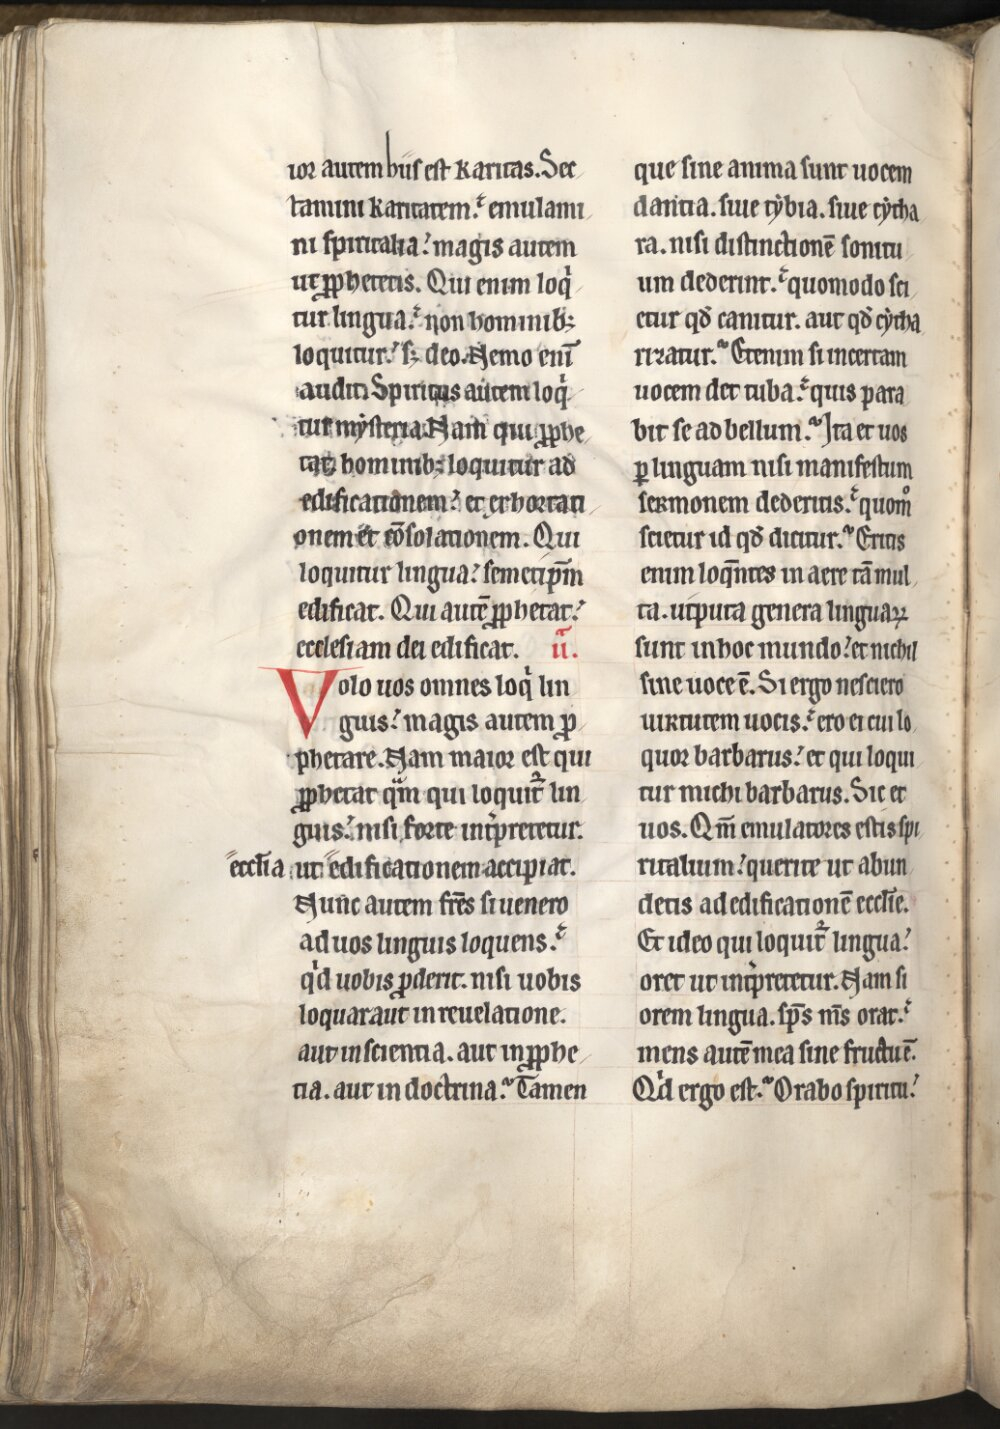 ior autem hiis est karitas. Sec
tamini karitatem. emulami
ni spiritalia. magis autem
ut ꝓphetetis. Qui enim loqͥ
tur lingua. non hominibꝫ
loquitur. sꝫ deo. Nemo enī
audit. Spiritus autem loqͥ
tur mẏsteria. Nam qui ꝓphe
tat. hominibꝫ loquitur ad
edificationem. et exhortati
onem et cōsolationem. Qui
loquitur lingua. semetip̄m
edificat. Qui autē ꝓphetat.
ecclesiam dei edificat. ii.
Volo uos omnes loqͥ lin
guis. magis autem ꝓ
phetare. Nam maior est qui
ꝓphetat qͣm qui loquit᷑ lin
guis. nisi forte int͛pretetur.
eccl̄ia ut edificationem accipiat.
Nunc autem fr̄es si uenero
ad uos linguis loquens.
qͥd uobis ꝓderit. nisi uobis
loquar aut in reuelatione.
aut in scientia. aut in ꝓphe
tia. aut in doctrina. Tamen
que sine anima sunt uocem
dantia. siue tẏbia. siue cẏtha
ra. nisi distinctionē sonitu
um dederint. quomodo sci
etur qđ canitur. aut qđ cẏtha
rizatur. Etenim si incertam
uocem det tuba. quis para
bit se ad bellum. Ita et uos
ꝑ linguam nisi manifestum
sermonem dederitis. quomͦ
scietur id qđ dicitur. Eritis
enim loq̄ntes in aere tā mul
ta. utputa genera linguaꝝ
sunt in hoc mundo. et nichil
sine uoce ē. Si ergo nesciero
uirtutem uocis. ero ei cui lo
quor barbarus. et qui loqui
tur michi barbarus. Sic et
uos. Qm̄ emulatores estis spi
ritalium. querite ut abun
detis ad edificationē eccl̄ie.
Et ideo qui loquit᷑ lingua.
oret ut int͛pretetur. Nam si
orem lingua. sp̄s m̄s orat.
mens autē mea sine fructu ē.
Qͥd ergo est. Orabo spiritu.